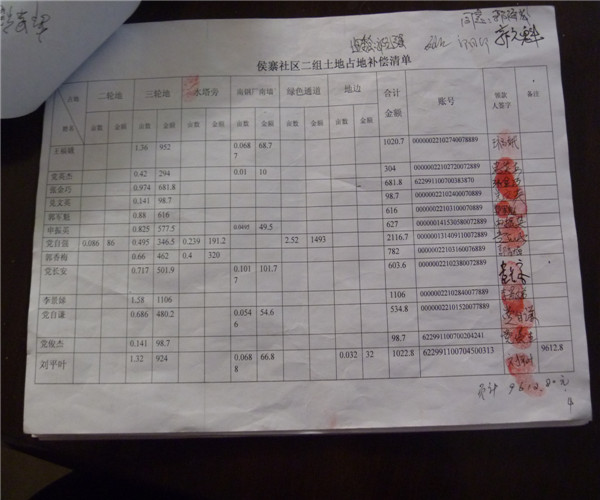 同意
侯寨社区二组土地占地补偿清单
占地 二轮地 三轮地 水塔旁 南钢厂南墙 绿色通道 地边 合计金额 账号 领款人签字 备注
姓名 亩数 金额 亩数 金额 亩数 金额 亩数 金额 亩数 金额 亩数 金额
1.36 952 0.0687 68.7 1020.7 00000022102740078889
党英杰 0.42 294 0.01 10 304 00000022102720072889
张金巧 0.974 681.8 681.8 622991100700383870
党文英 0.141 98.7 98.7 00000022102400070889
郭军魁 0.88 616 616 00000022103100070889
申振英 0.825 577.5 0.0495 49.5 627 00000141530580072889
党自强 0.086 86 0.495 346.5 0.239 191.2 2.52 1493 2116.7 00000131409110072889
郭香梅 0.66 462 0.4 320 782 00000022103160076889
党长安 0.717 501.9 0.1017 101.7 603.6 00000022102380072889
李景娣 1.58 1106 1106 00000022102840077889
党自谦 0.686 480.2 0.0546 54.6 534.8 00000022101520077889
党俊杰 0.141 98.7 98.7 622991100700204241
刘平叶 1.32 924 0.0668 66.8 0.032 32 1022.8 622991100704500313 9612.8
总计 9612.80元
4